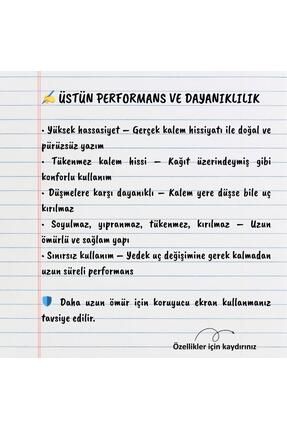 ✍️ ÜSTÜN PERFORMANS VE DAYANIKLILIK
• Yüksek hassasiyet – Gerçek kalem hissiyatı ile doğal ve
pürüzsüz yazım
• Tükenmez kalem hissi – Kağıt üzerindeymiş gibi
konforlu kullanım
• Düşmelere karşı dayanıklı – Kalem yere düşse bile uç
kırılmaz
• Soyulmaz, yıpranmaz, tükenmez, kırılmaz – Uzun
ömürlü ve sağlam yapı
• Sınırsız kullanım – Yedek uç değişimine gerek kalmadan
uzun süreli performans
🛡️ Daha uzun ömür için koruyucu ekran kullanmanız
tavsiye edilir.
Özellikler için kaydırınız